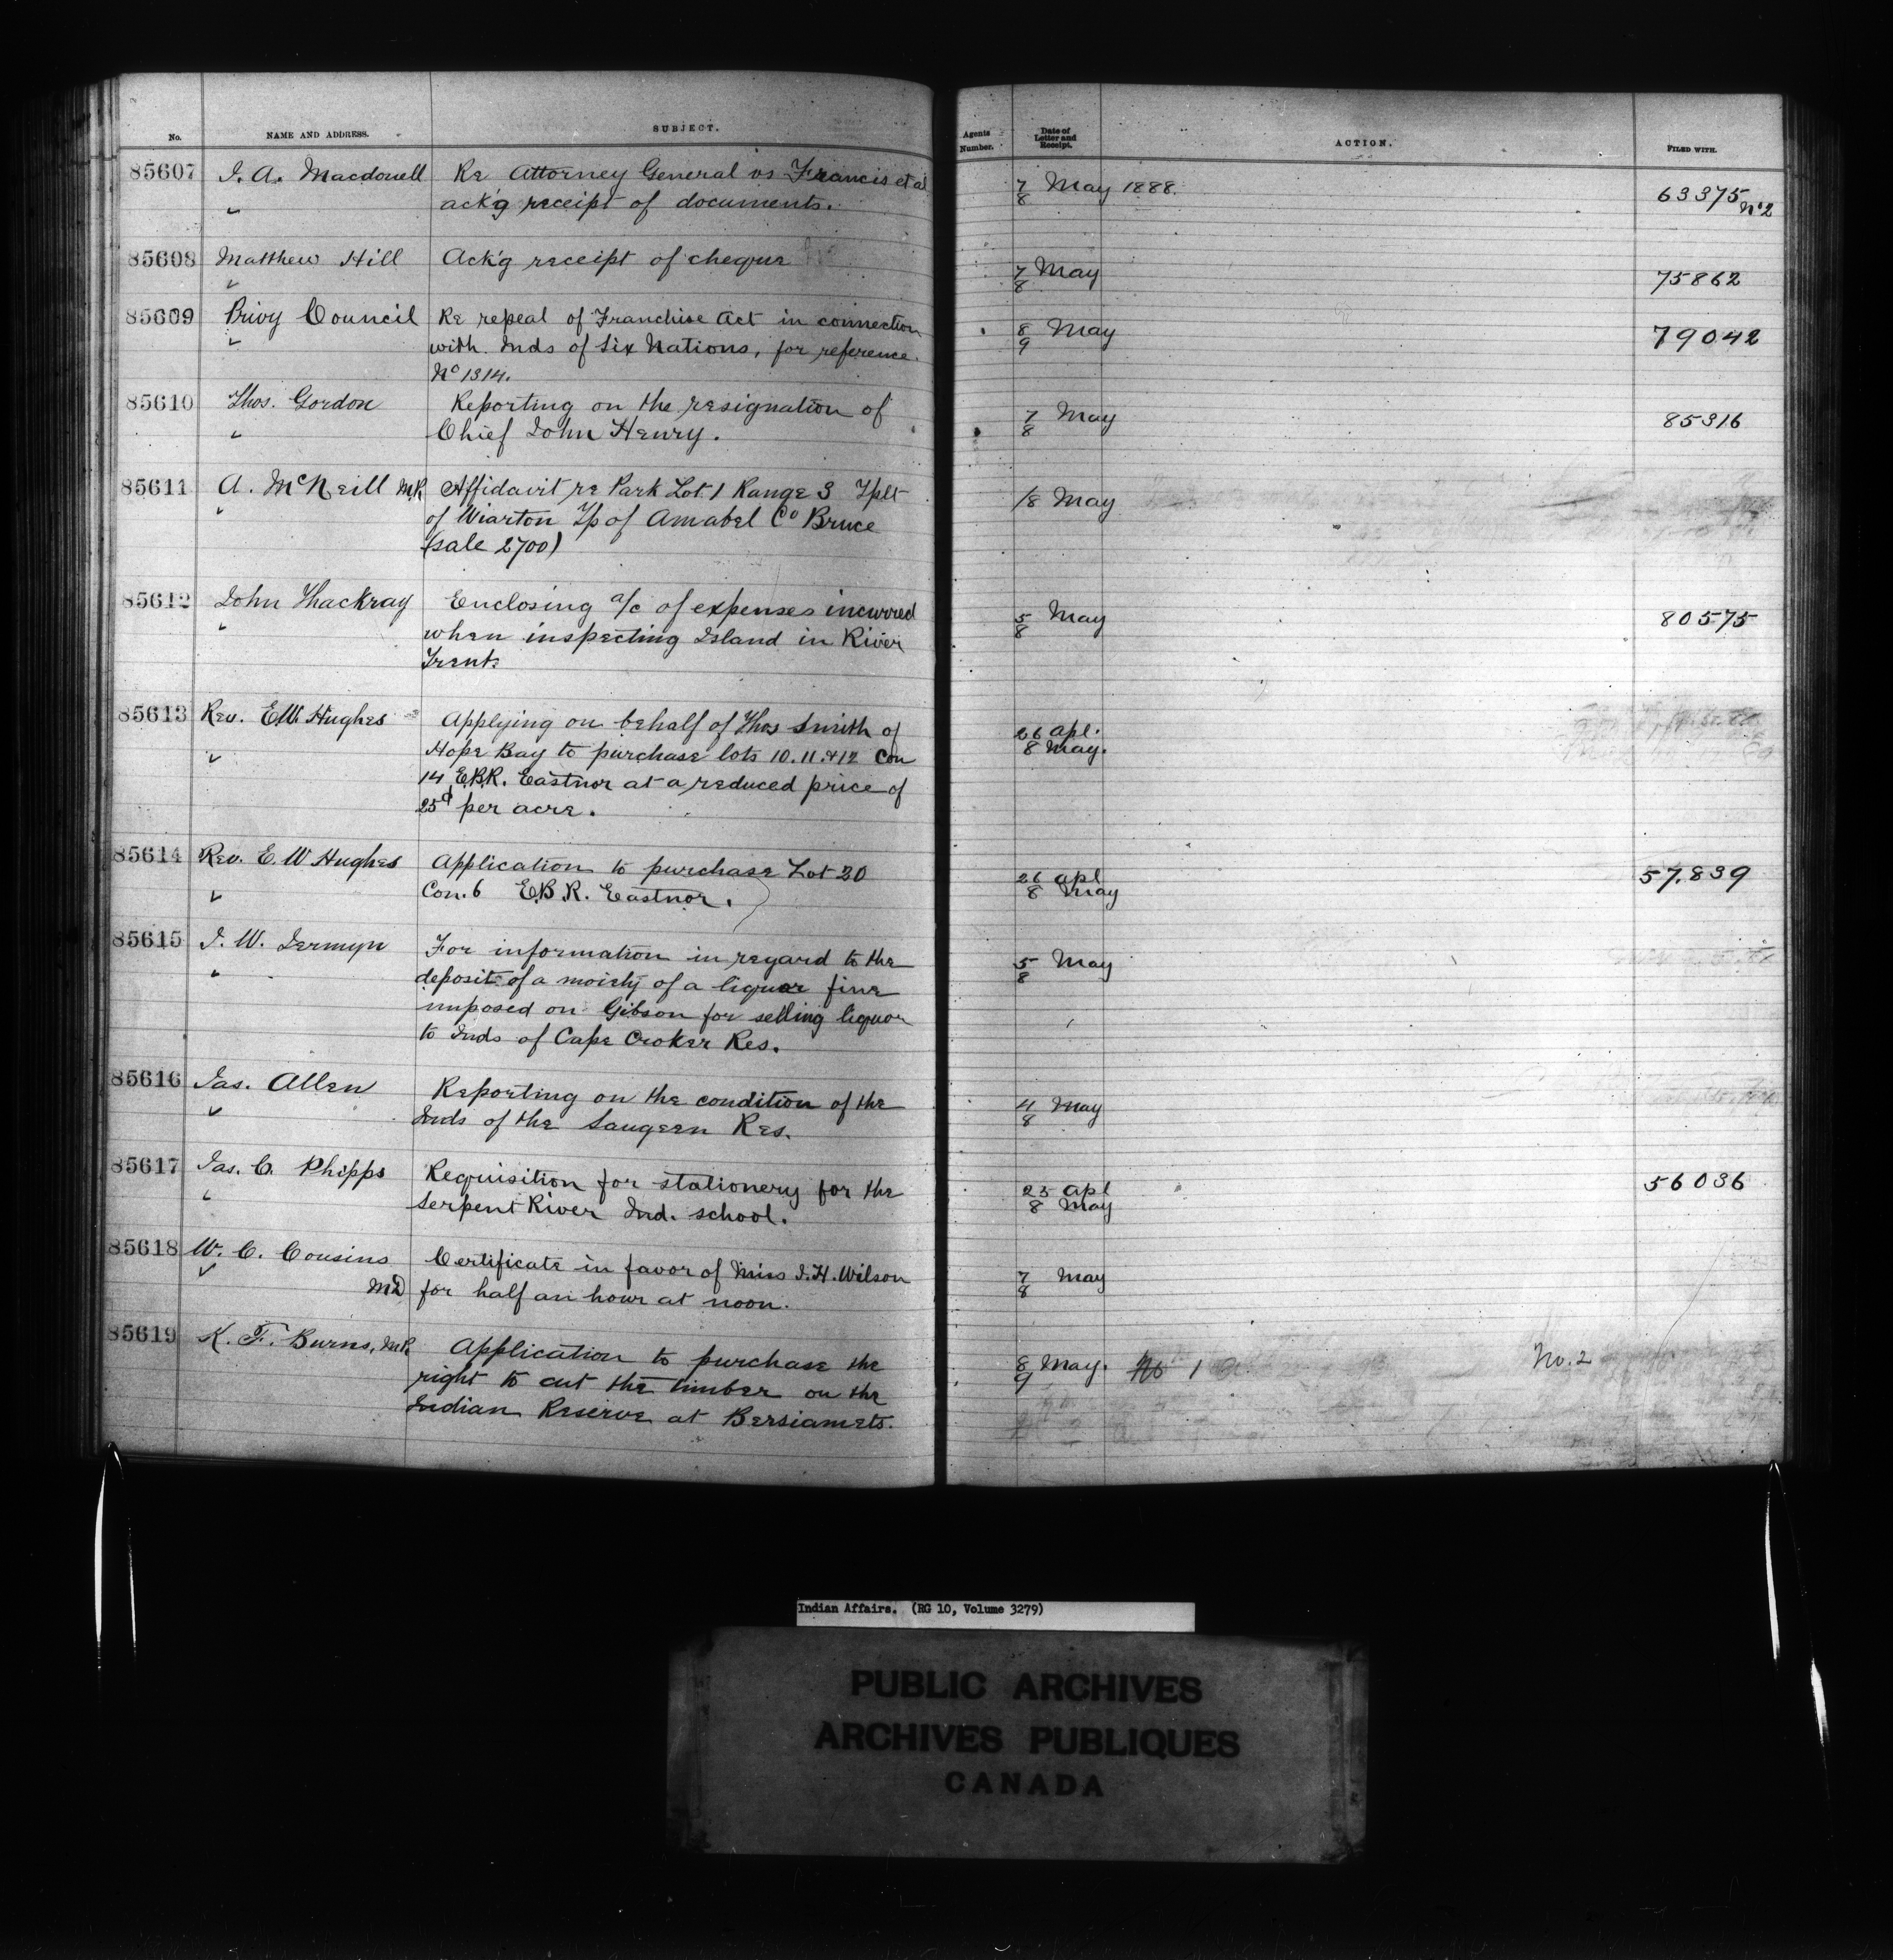 No. NAME AND ADDRESS. SUBJECT. Agents Number. Date of Letter and Receipt. ACTION. FILED WITH.
85607 J. A. Macdonell Re Attorney General vs Francis et al 7/8 May 1888. 63375 No 2
" ack'g receipt of documents.
85608 Matthew Hill Ack'g receipt of cheque 7/8 May 75862
"
85609 Privy Council Re repeal of Franchise Act in connection 8/9 May 79042
" with Inds of Six Nations, for reference.
No 1314.
85610 Thos. Gordon Reporting on the resignation of 7/8 May 85316
" Chief John Henry.
85611 A. McNeill MP Affidavit re Park Lot 1 Range 3 Tplt /8 May
" of Wiarton Tp of Amabel Co Bruce
(sale 2700)
85612 John Thackray Enclosing a/c of expenses incurred 5/8 May 80575
" when inspecting Island in River
Trent.
85613 Rev. E.W. Hughes Applying on behalf of Thos Smith of 26 Apl.
" Hope Bay to purchase lots 10.11.&12 Con 8 May.
14 E.B.R. Eastnor at a reduced price of
25¢ per acre.
85614 Rev. E. W Hughes Application to purchase Lot 20 26 Apl 57.839
" Con. 6 E.B.R. Eastnor. 8 May
85615 J. W. Jermyn For information in regard to the 5/8 May
" deposit of a moiety of a liquor fine
imposed on Gibson for selling liquor
to Inds of Cape Croker Res.
85616 Jas. Allen Reporting on the condition of the 4/8 May
" Inds of the Saugeen Res.
85617 Jas. C. Phipps Requisition for stationery for the 25 Apl 56036
" Serpent River Ind. school. 8 May
85618 W. C. Cousins Certificate in favor of Miss J. H. Wilson 7/8 May
" MD for half an hour at noon.
85619 K. F. Burns, MP. Application to purchase the 8/9 May. No 1 No. 2
right to cut the timber on the
Indian Reserve at Bersiamets.
Indian Affairs. (RG 10, Volume 3279)
PUBLIC ARCHIVES
ARCHIVES PUBLIQUES
CANADA